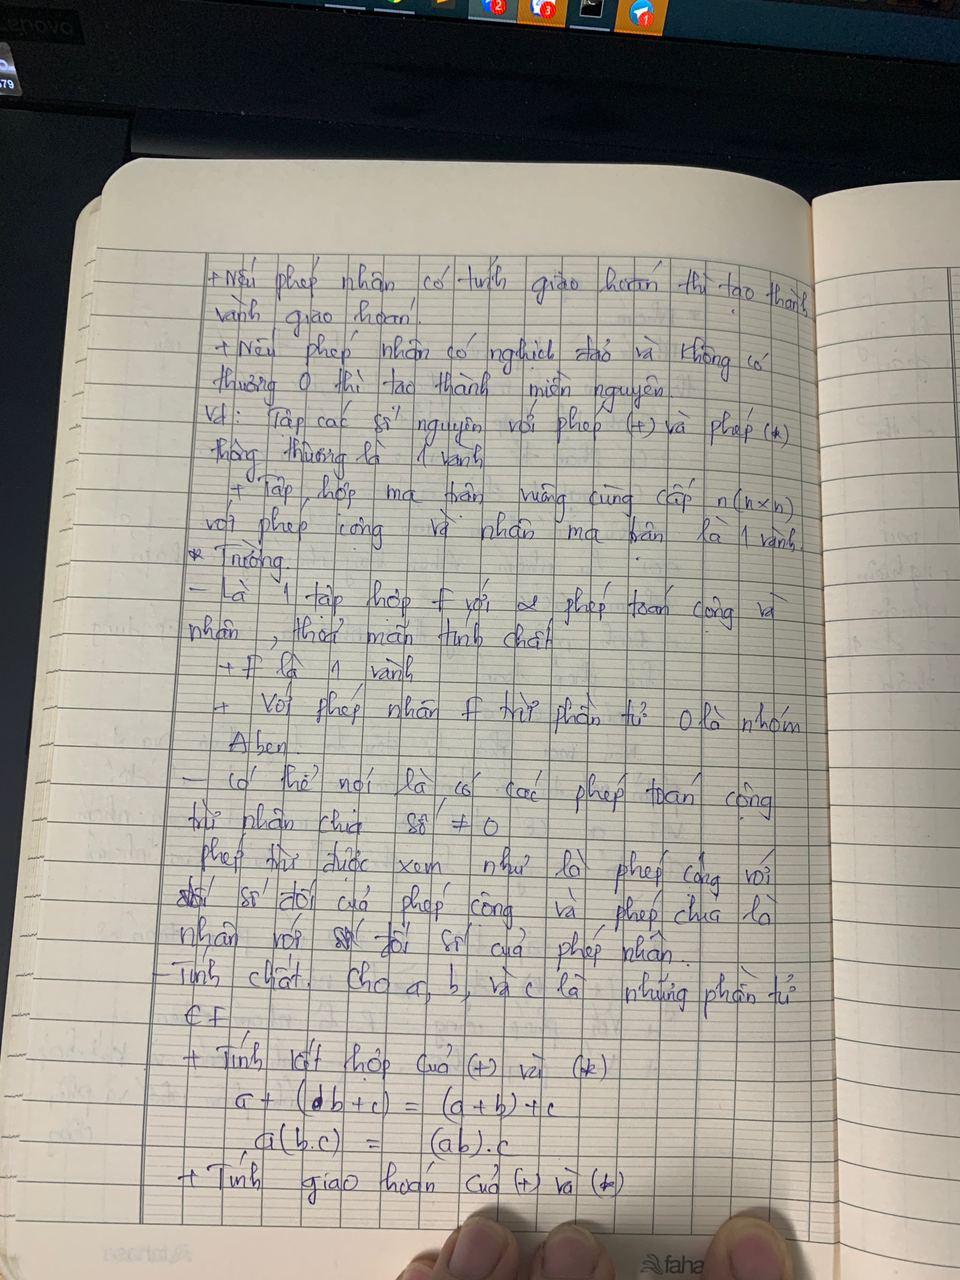 + Nếu phép nhân có tính giao hoán thì tạo thành
vành giao hoán.
+ Nếu phép nhân có nghịch đảo và không có
thương 0 thì tạo thành miền nguyên.
Vd: Tập các số nguyên với phép (+) và phép (*)
thông thường là 1 vành
+ Tập hợp ma trận vuông cùng cấp n(n×n)
với phép cộng và nhân ma trận là 1 vành.
* Trường.
- Là 1 tập hợp F với 2 phép toán cộng và
nhân, thoả mãn tính chất
+ F là 1 vành
+ Với phép nhân F trừ phần tử 0 là nhóm
Aben.
- Có thể nói là có các phép toán cộng
trừ nhân chia số ≠ 0
phép trừ được xem như là phép cộng với
số đối của phép cộng và phép chia là
nhân với đối số của phép nhân.
- Tính chất. Cho a, b, và c là những phần tử
∈ F
+ Tính kết hợp của (+) và (*)
a + (b + c) = (a + b) + c
a(b.c) = (ab).c
+ Tính giao hoán của (+) và (*)
fahasa
faha
2
3
1
579